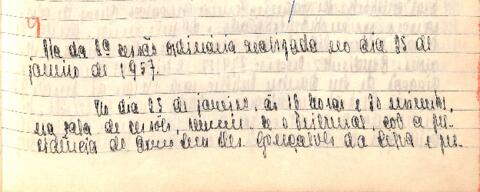 9
Ata da 8ª sessão ordinaria realizada no dia 25 de
janeiro de 1957.
No dia 25 de janeiro, ás 16 horas e 30 minutos,
na sala de sessões, reuniu-se o Tribunal, sob a pre-
sidência do Gonçalves da Silva e pre-